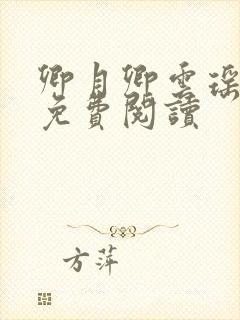 卿自卿雲瑤
免費閱讀
方萍